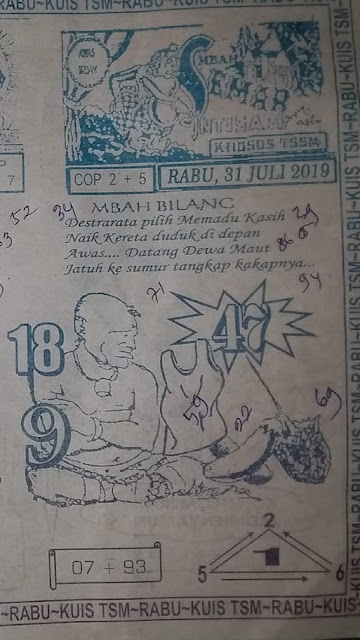 RABU~KUIS TSM~RABU~KUIS TSM
MBAH
SEMAR
KHUSUS TSSM
7
COP 2 + 5
RABU, 31 JULI 2019
52
34
MBAH BILANG
Destrarata pilih Memadu Kasih
Naik Kereta duduk di depan
Awas.... Datang Dewa Maut
86
Jatuh ke sumur tangkap kakapnya...
94
71
18
47
9
59
22
69
07 + 93
2
5
6
~RABU~KUIS TSM~RABU~KUIS TSM~RABU~KUIS TSM~
RABU~KUIS TSM~RABU~KUIS TSM